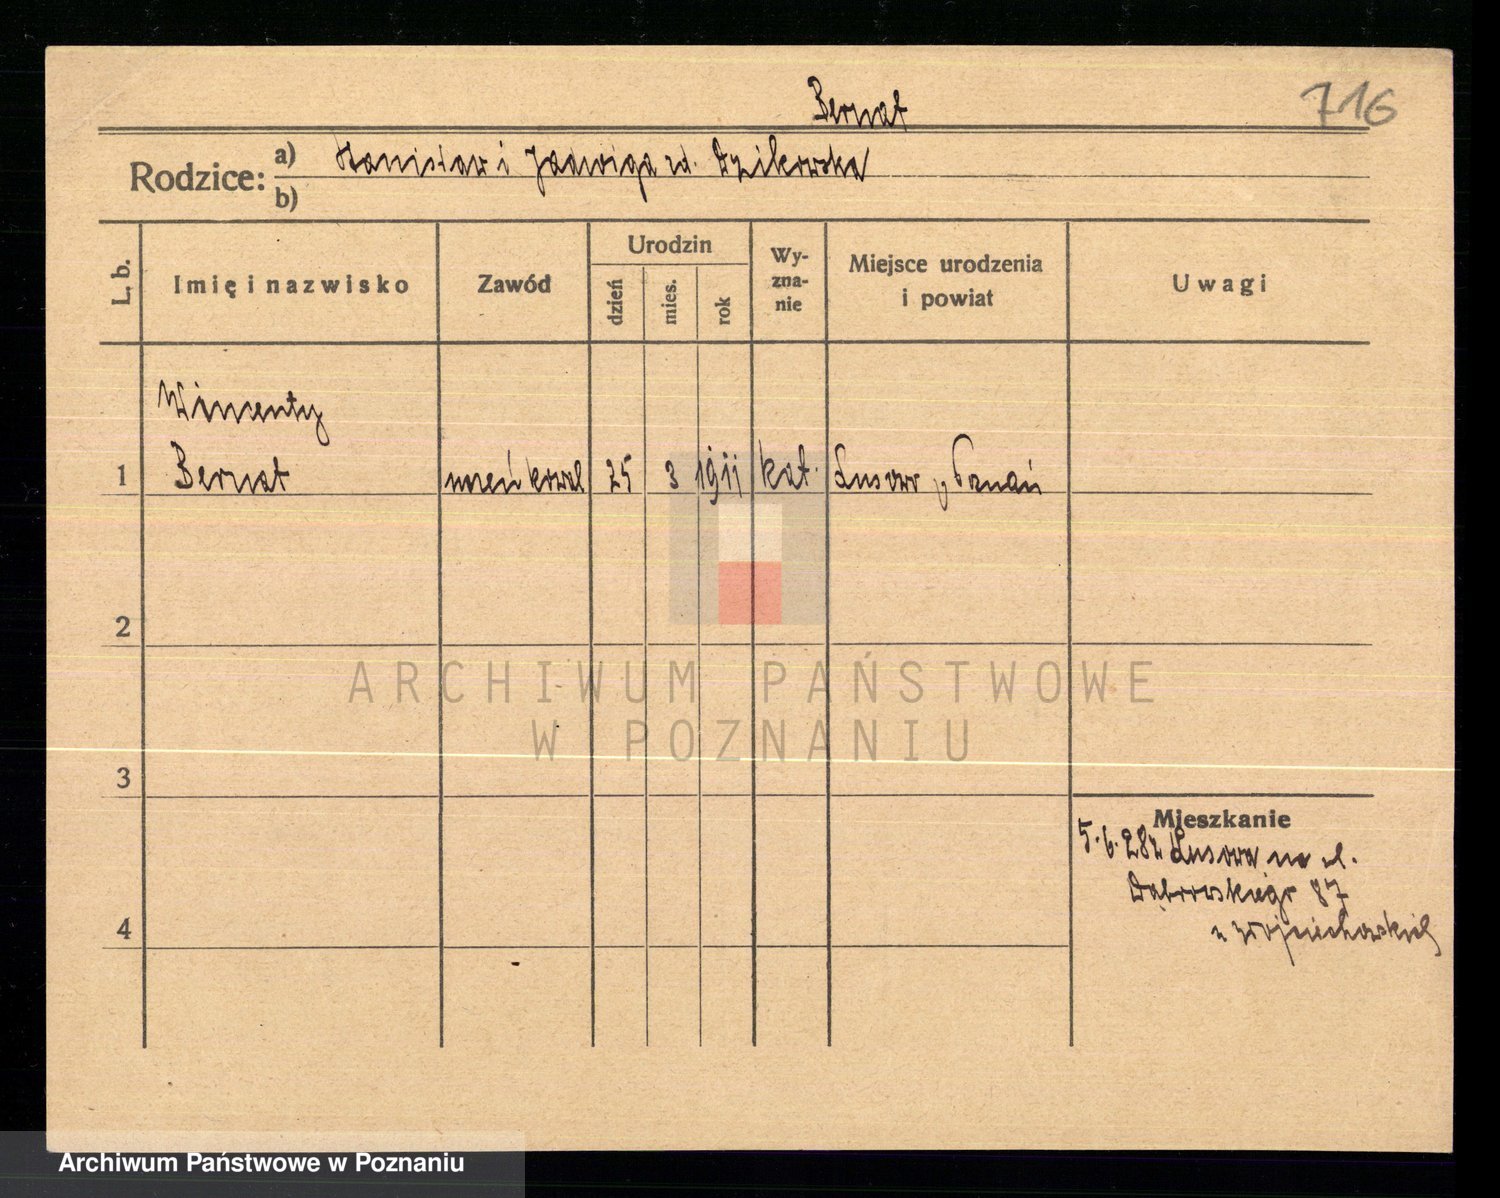 Bernat
716
Rodzice:
a) Stanisław i Jadwiga zd. Dzikowska
b)
L. b.
Imię i nazwisko
Zawód
Urodzin
dzień
mies.
rok
Wy-
zna-
nie
Miejsce urodzenia
i powiat
Uwagi
Wincenty
1 Bernat uczeń kowal 25 3 1911 kat. Lusowo p Poznań
2
3
4
Mieszkanie
5.6.28 z Lusowa na ul.
Dąbrowskiego 87
u Wojciechowskich
ARCHIWUM PAŃSTWOWE
W POZNANIU
Archiwum Państwowe w Poznaniu